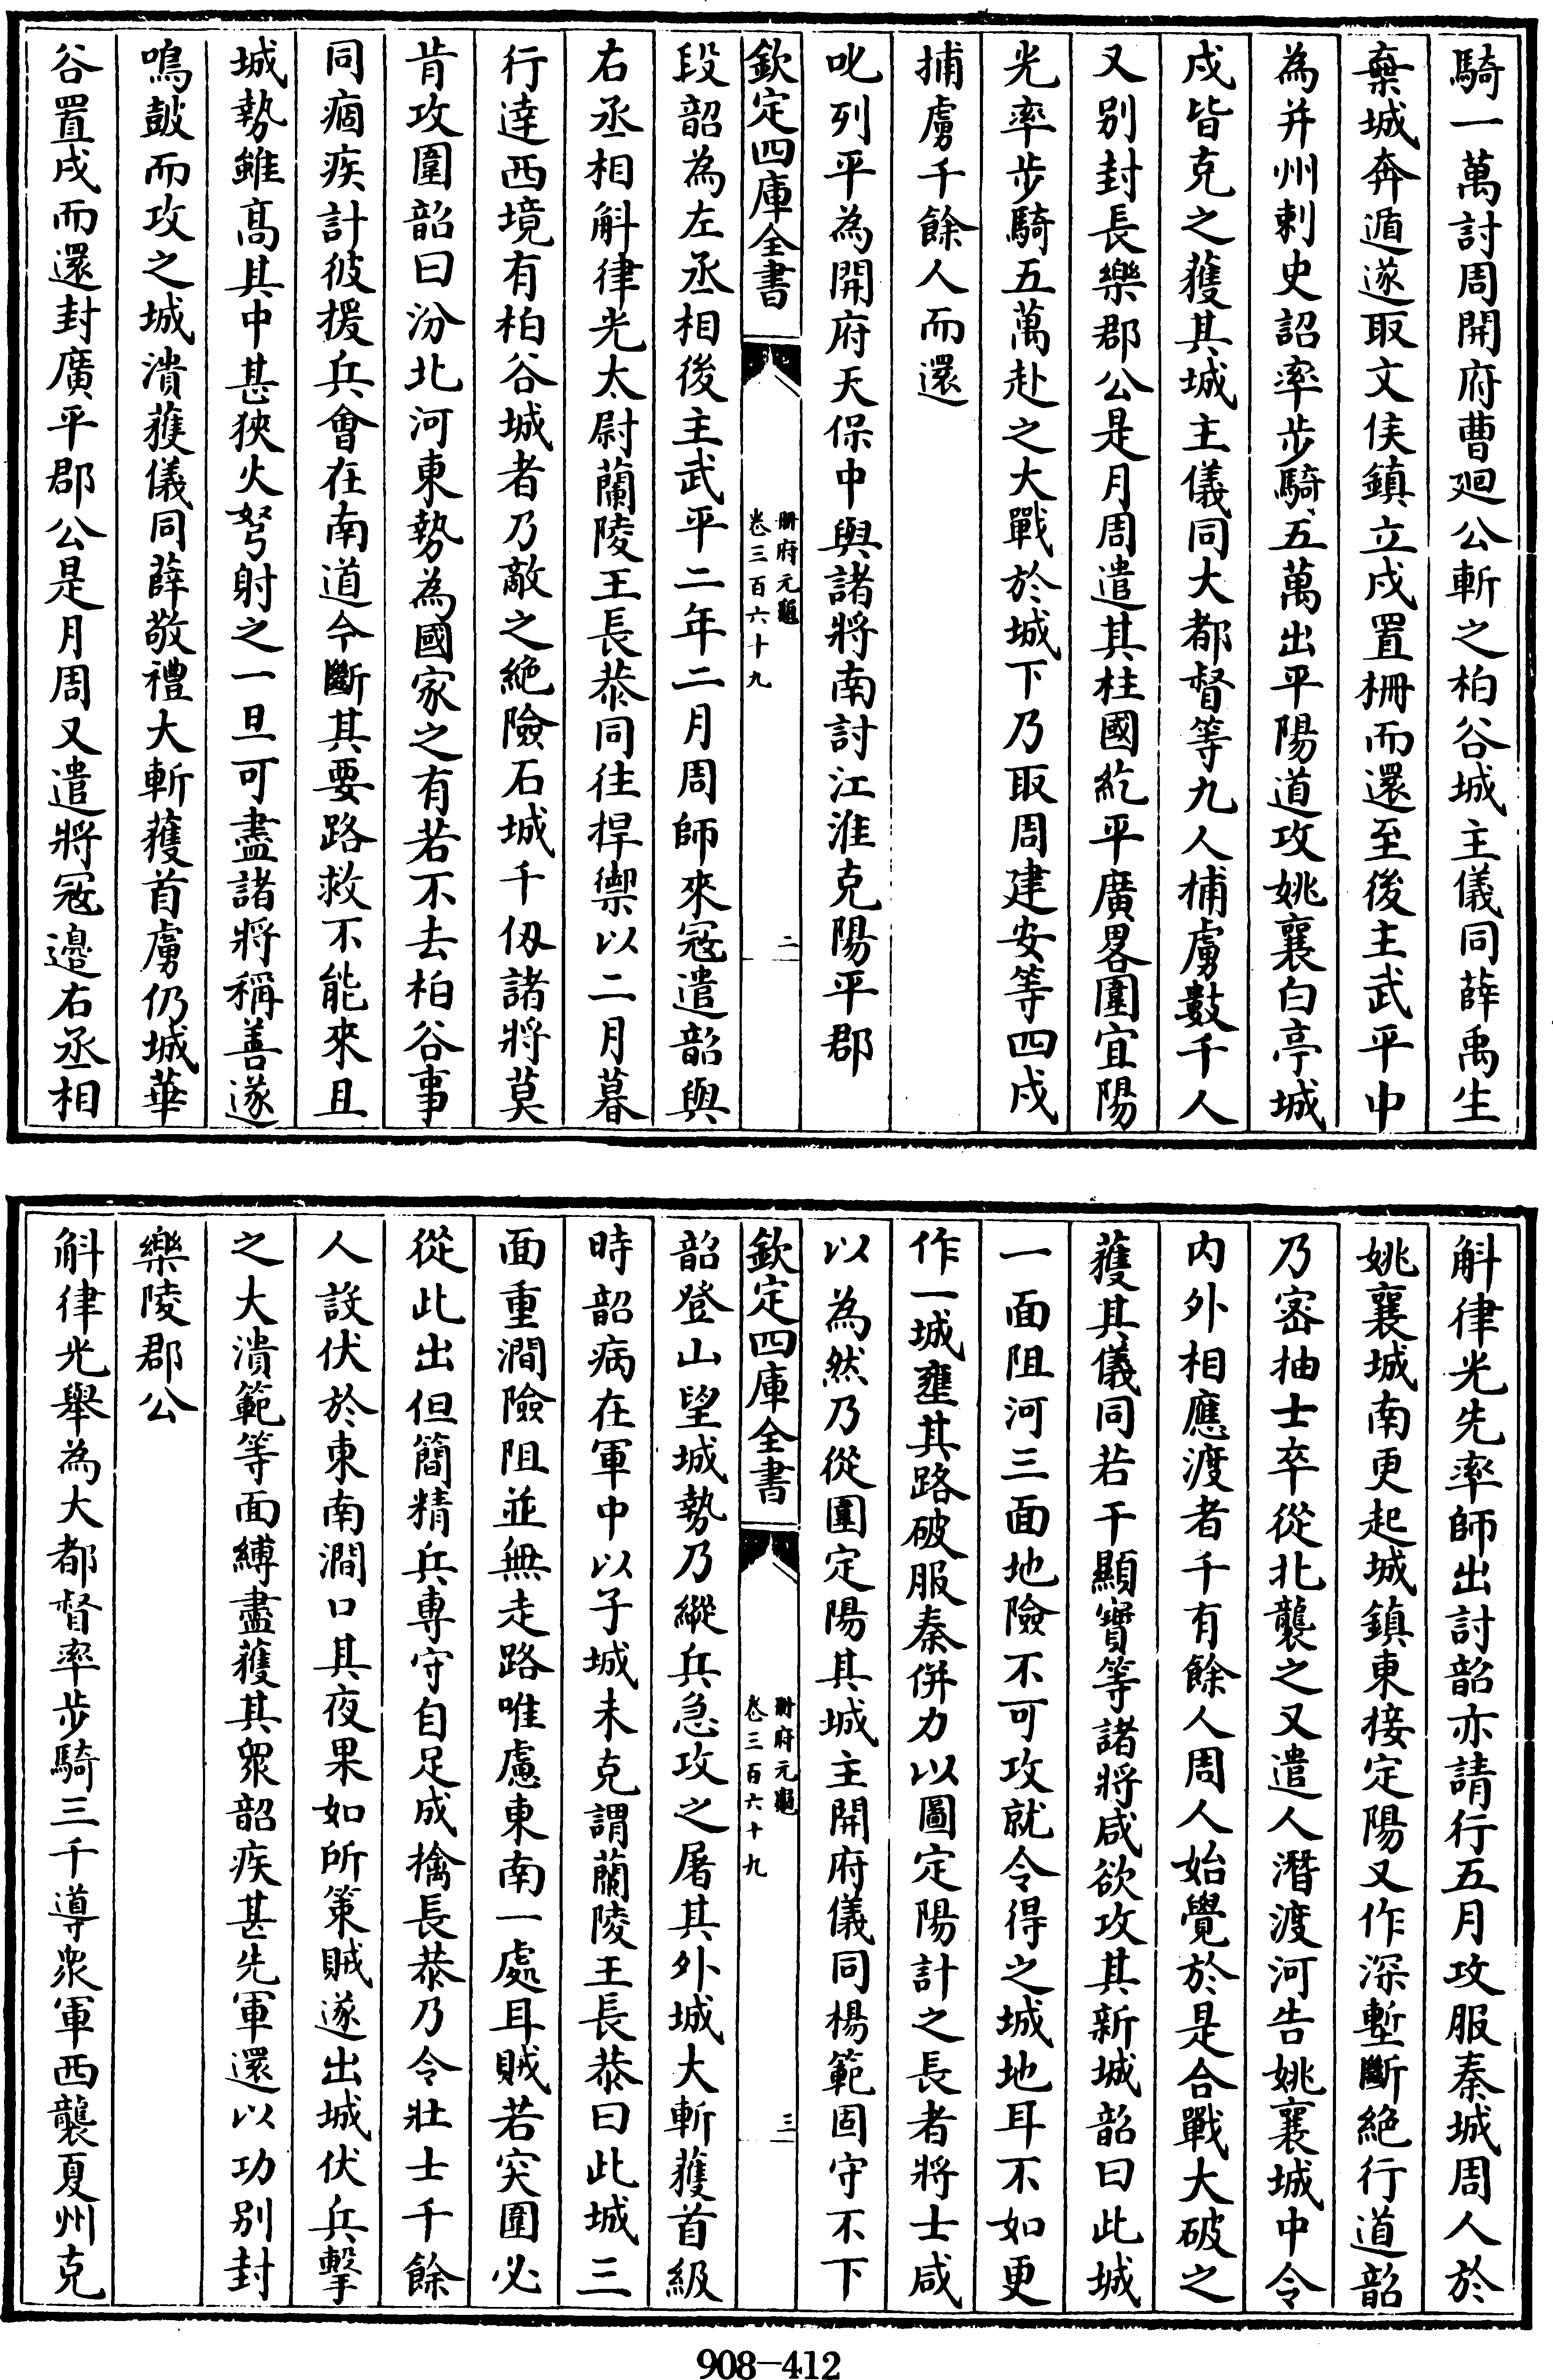 騎一萬討周開府曹廻公斬之柏谷城主儀同薛禹生
棄城奔遁遂取文侯鎮立戍置柵而還至後主武平中
為并州刺史詔率步騎五萬出平陽道攻姚襄白亭城
戍皆克之獲其城主儀同大都督等九人捕虜數千人
又别封長樂郡公是月周遣其柱國紇平廣畧圍宜陽
光率步騎五萬赴之大戰於城下乃取周建安等四戍
捕虜千餘人而還
叱列平為開府天保中與諸將南討江淮克陽平郡
欽定四庫全書
冊府元龜
卷三百六十九
二
段韶為左丞相後主武平二年二月周師來宼遣韶與
右丞相斛律光太尉蘭陵王長恭同往捍禦以二月暮
行達西境有柏谷城者乃敵之絶險石城千仭諸將莫
肯攻圍韶曰汾北河東勢為國家之有若不去柏谷事
同痼疾計彼援兵會在南道今斷其要路救不能來且
城勢雖髙其中甚狹火弩射之一旦可盡諸將稱善遂
鳴鼓而攻之城潰獲儀同薛敬禮大斬獲首虜仍城華
谷置戍而還封廣平郡公是月周又遣將宼邉右丞相
斛律光先率師出討韶亦請行五月攻服秦城周人於
姚襄城南更起城鎮東接定陽又作深塹斷絶行道韶
乃密抽士卒從北襲之又遣人潛渡河告姚襄城中令
内外相應渡者千有餘人周人始覺於是合戰大破之
獲其儀同若干顯寳等諸將咸欲攻其新城韶曰此城
一面阻河三面地險不可攻就令得之城地耳不如更
作一城壅其路破服秦併力以圖定陽計之長者將士咸
以為然乃從圍定陽其城主開府儀同楊範固守不下
欽定四庫全書
冊府元龜
卷三百六十九
三
韶登山望城勢乃縱兵急攻之屠其外城大斬獲首級
時韶病在軍中以子城未克謂蘭陵王長恭曰此城三
面重澗險阻並無走路唯慮東南一處耳賊若突圍必
從此出但簡精兵專守自足成擒長恭乃令壯士千餘
人設伏於東南澗口其夜果如所策賊遂出城伏兵擊
之大潰範等面縛盡獲其衆韶疾甚先軍還以功别封
樂陵郡公
斛律光舉為大都督率步騎三千導衆軍西襲夏州克
908-412